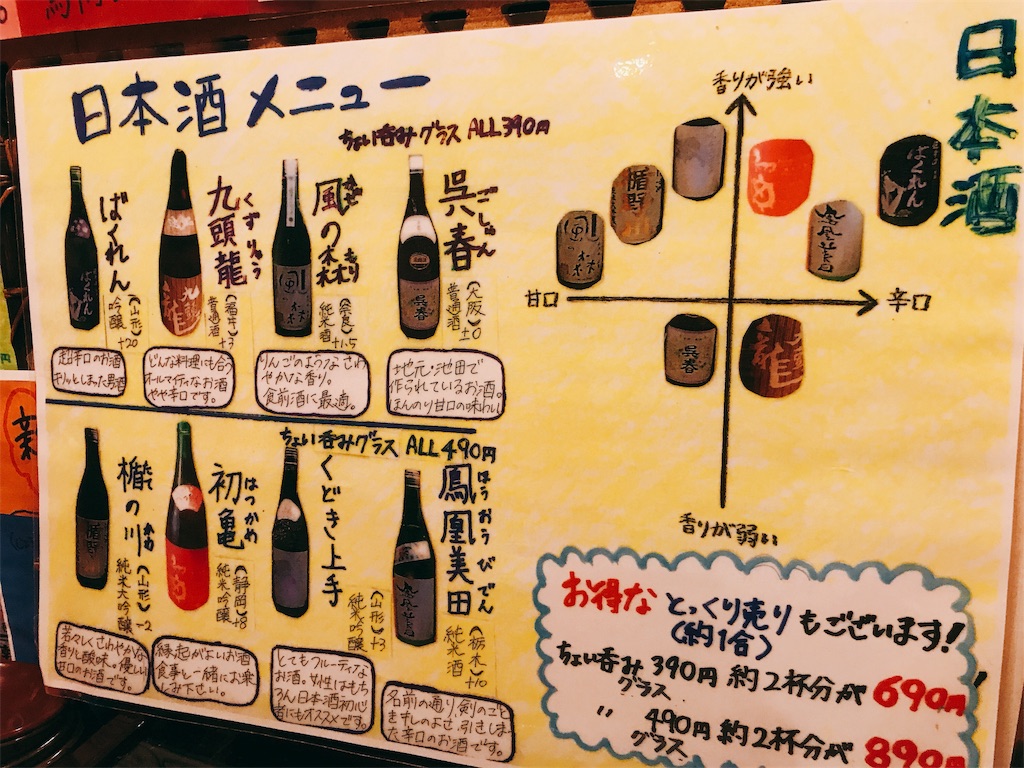 日本酒メニュー
ちょい呑みグラス ALL390円
ばくれん
(山形)
吟醸 +20
超辛口のお酒
キリッとしまった男酒
九頭龍
くずりゅう
(福井)
普通酒 +3
どんな料理にも合う
オールマイティなお酒
やや辛口です。
風の森
かぜ もり
(奈良)
純米酒 +1.5
りんごのようなさわ
やかな香り。
食前酒に最適。
呉春
ごしゅん
(大阪)
普通酒 ±0
地元・池田で
作られているお酒。
ほんのり甘口の味わい
ちょい呑みグラス ALL490円
楯の川
たて かわ
(山形)
純米大吟醸 -2
若々しくさわやかな
香りと酸味。優しい
甘口のお酒です。
初亀
はつかめ
(静岡)
純米吟醸 +8
縁起がよいお酒
食事と一緒にお楽
しみ下さい。
くどき上手
(山形)
純米吟醸 +3
とてもフルーティなな
お酒。女性はもち
ろん日本酒初心
者にもオススメです。
鳳凰美田
ほうおうびでん
(栃木)
純米酒 +10
名前の通り、剣のごと
きキレのよさ、引きしまっ
た辛口のお酒です。
日本酒
香りが強い
甘口
辛口
香りが弱い
ばくれん
風の森
呉春
お得な とっくり売り もございます!
(約1合)
ちょい呑み 390円 約2杯分が 690円
グラス
〃 490円 約2杯分が 890円
グラス